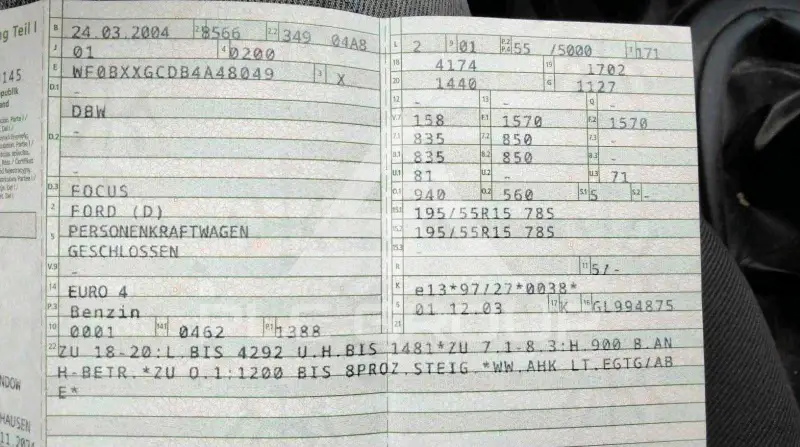 ng Teil I
145
publik
and
B 24.03.2004 2.1 8566 2.2 349 04A8
J 01 4 0200
E WF0BXXGCDB4A48049 3 X
D.1 -
DBW
D.2 -
-
D.3 FOCUS
2 FORD (D)
5 PERSONENKRAFTWAGEN
GESCHLOSSEN
V.9 -
14 EURO 4
P.3 Benzin
10 0001 14.1 0462 P.1 1388
L 2 9 01 P.2 P.4 55 /5000 T 171
18 4174 19 1702
20 1440 G 1127
12 - 13 - Q -
V.7 158 F.1 1570 F.2 1570
7.1 835 7.2 850 7.3 -
8.1 835 8.2 850 8.3 -
U.1 81 U.2 - U.3 71
O.1 940 O.2 560 S.1 5 S.2 -
15.1 195/55R15 78S
15.2 195/55R15 78S
15.3 -
R 11 5/-
K e13*97/27*0038*
6 01.12.03 17 K 16 GL994875
21
22 ZU 18-20:L.BIS 4292 U.H.BIS 1481*ZU 7.1-8.3:H.900 B.AN
H-BETR.*ZU O.1:1200 BIS 8PROZ.STEIG.*WW.AHK LT.EGTG/AB
E*
NDOW
HAUSEN